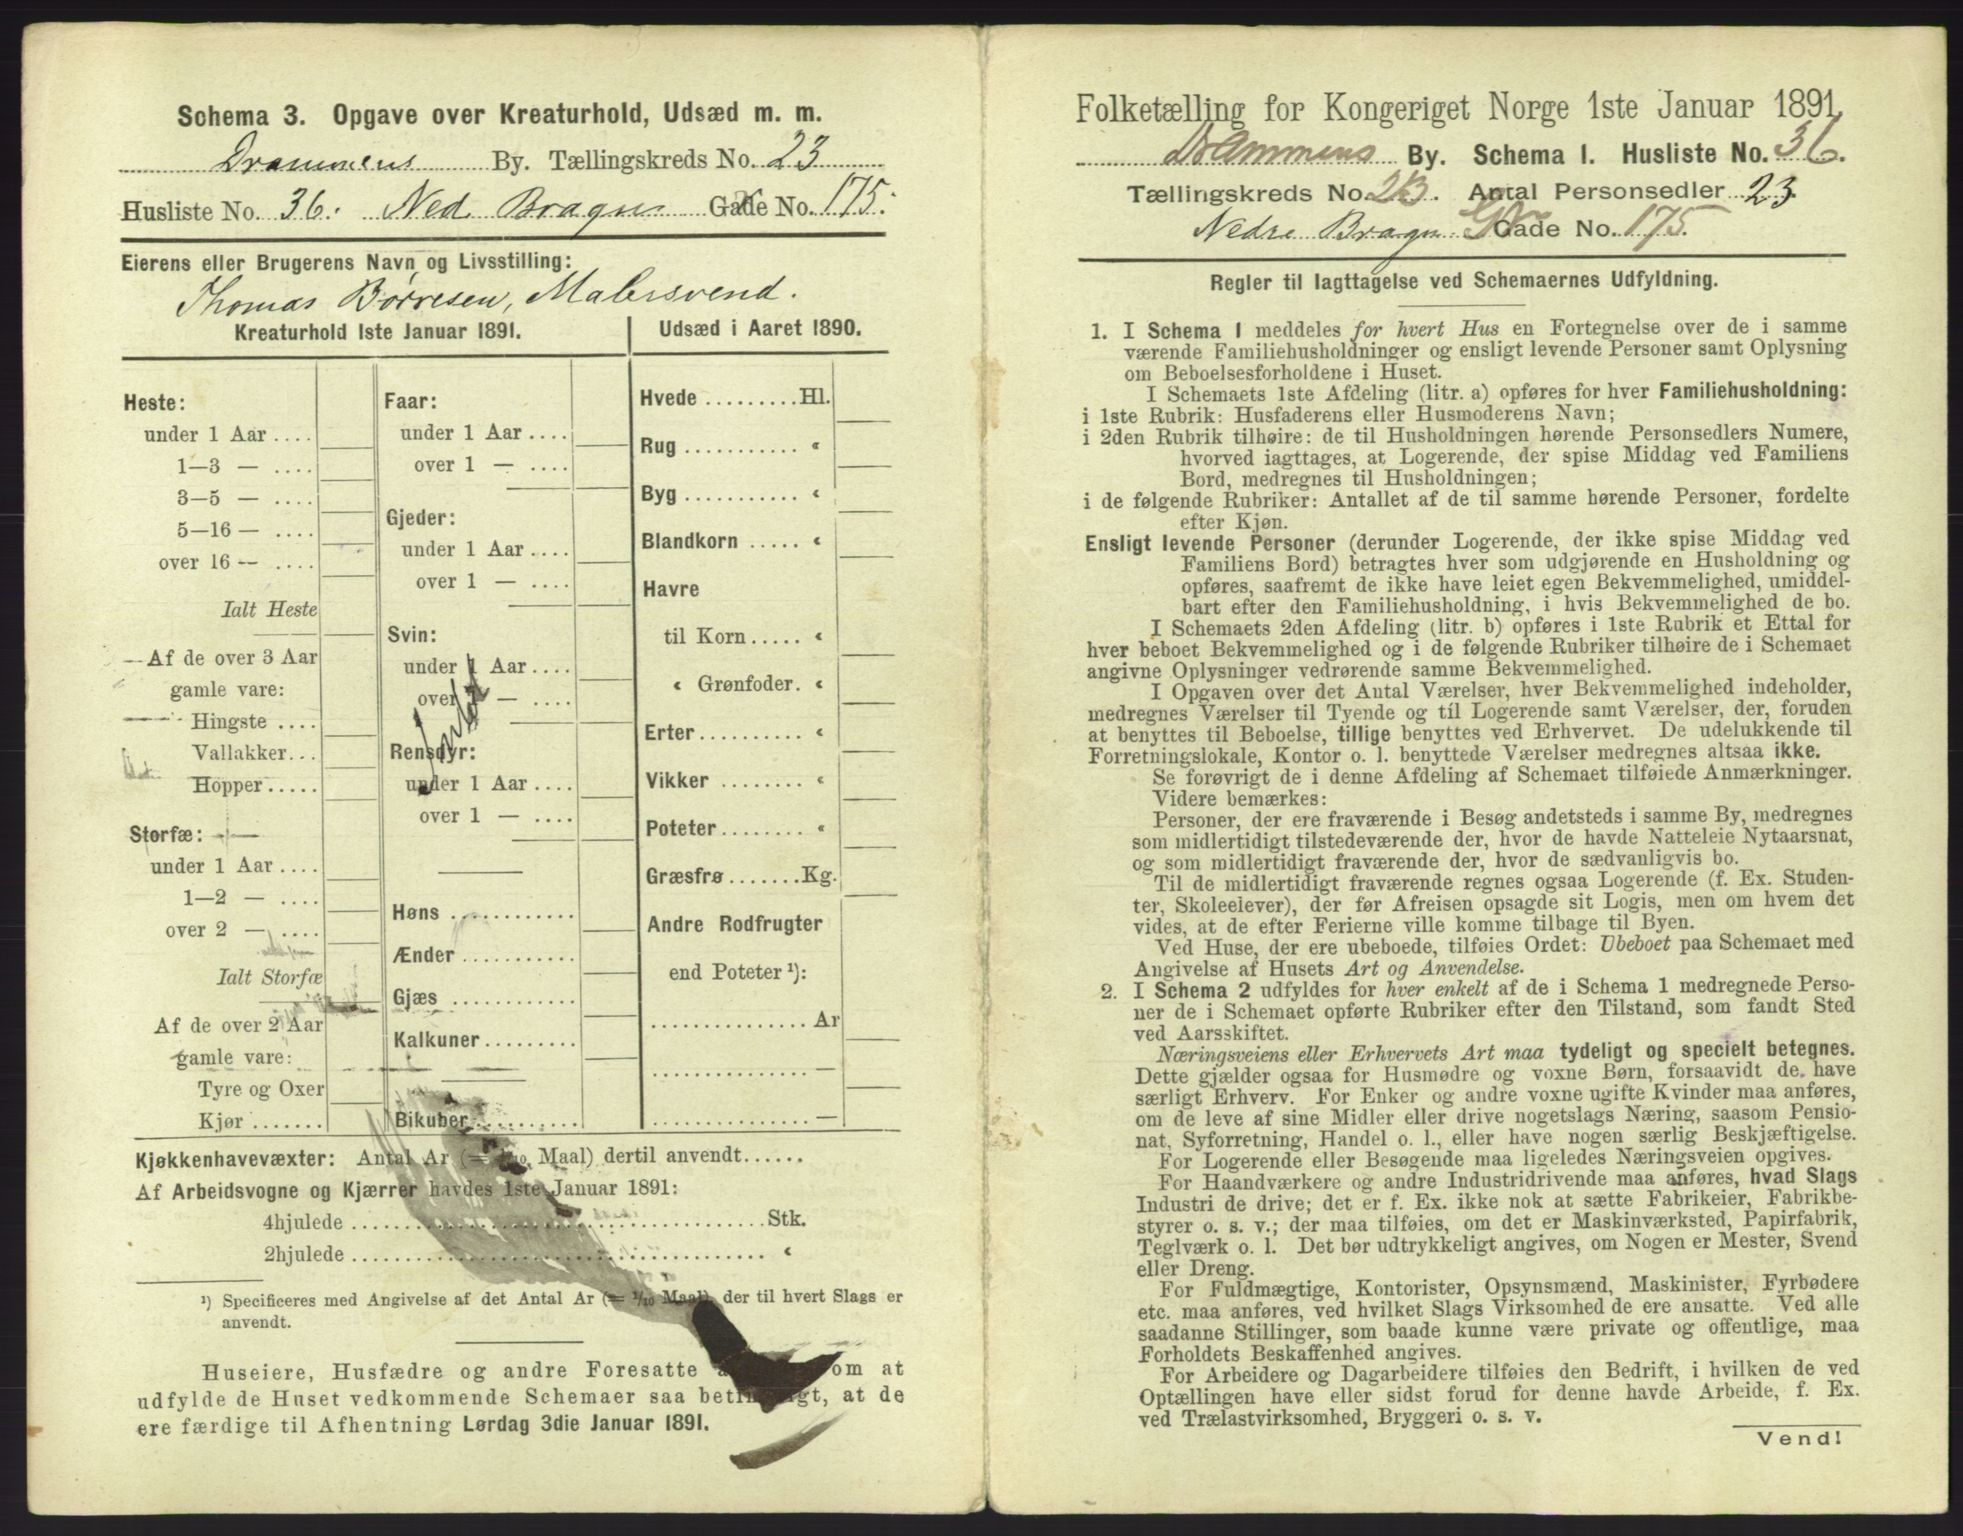 Schema 3. Opgave over Kreaturhold, Udsæd m. m.
Drammens By. Tællingskreds No. 23
Husliste No. 36. Ned Bragns Gade No. 175.
Eierens eller Brugerens Navn og Livsstilling:
Thomas Børresen, Malersvend.
Kreaturhold 1ste Januar 1891.
Heste:
under 1 Aar ....
1—3 — ....
3—5 — ....
5—16 — ....
over 16 — ....
Ialt Heste
Af de over 3 Aar
gamle vare:
Hingste ....
Vallakker...
Hopper.....
Storfæ:
under 1 Aar ....
1—2 — ....
over 2 — ....
Ialt Storfæ
Af de over 2 Aar
gamle vare:
Tyre og Oxer
Kjør .......
Faar:
under 1 Aar ....
over 1 — ....
Gjeder:
under 1 Aar ....
over 1 — ....
Svin:
under 1 Aar ....
over 1 — ....
Rensdyr:
under 1 Aar ....
over 1 — ....
Høns ...........
Ænder ...........
Gjæs ...........
Kalkuner.........
Bikuber..........
Udsæd i Aaret 1890.
Hvede .........Hl.
Rug ........... «
Byg ........... «
Blandkorn ..... «
Havre
til Korn..... «
« Grønfoder. «
Erter.......... «
Vikker ........ «
Poteter........ «
Græsfrø.......Kg.
Andre Rodfrugter
end Poteter ¹):
...............Ar
............... —
............... —
Kjøkkenhavevæxter: Antal Ar (= 1/10 Maal) dertil anvendt......
Af Arbeidsvogne og Kjærrer havdes 1ste Januar 1891:
4hjulede ........................................Stk.
2hjulede ........................................ «
¹) Specificeres med Angivelse af det Antal Ar (= 1/10 Maal), der til hvert Slags er
anvendt.
Huseiere, Husfædre og andre Foresatte om at
udfylde de Huset vedkommende Schemaer saa betimeligt, at de
ere færdige til Afhentning Lørdag 3die Januar 1891.
Folketælling for Kongeriget Norge 1ste Januar 1891.
Drammens By. Schema 1. Husliste No. 36.
Tællingskreds No. 23. Antal Personsedler 23.
Nedre Bragn Gade No. 175.
Regler til Iagttagelse ved Schemaernes Udfyldning.
1. I Schema 1 meddeles for hvert Hus en Fortegnelse over de i samme
værende Familiehusholdninger og ensligt levende Personer samt Oplysning
om Beboelsesforholdene i Huset.
I Schemaets 1ste Afdeling (litr. a) opføres for hver Familiehusholdning:
i 1ste Rubrik: Husfaderens eller Husmoderens Navn;
i 2den Rubrik tilhøire: de til Husholdningen hørende Personsedlers Numere,
hvorved iagttages, at Logerende, der spise Middag ved Familiens
Bord, medregnes til Husholdningen;
i de følgende Rubriker: Antallet af de til samme hørende Personer, fordelte
efter Kjøn.
Ensligt levende Personer (derunder Logerende, der ikke spise Middag ved
Familiens Bord) betragtes hver som udgjørende en Husholdning og
opføres, saafremt de ikke have leiet egen Bekvemmelighed, umiddel-
bart efter den Familiehusholdning, i hvis Bekvemmelighed de bo.
I Schemaets 2den Afdeling (litr. b) opføres i 1ste Rubrik et Ettal for
hver beboet Bekvemmelighed og i de følgende Rubriker tilhøire de i Schemaet
angivne Oplysninger vedrørende samme Bekvemmelighed.
I Opgaven over det Antal Værelser, hver Bekvemmelighed indeholder,
medregnes Værelser til Tyende og til Logerende samt Værelser, der, foruden
at benyttes til Beboelse, tillige benyttes ved Erhvervet. De udelukkende til
Forretningslokale, Kontor o. l. benyttede Værelser medregnes altsaa ikke.
Se forøvrigt de i denne Afdeling af Schemaet tilføiede Anmærkninger.
Videre bemærkes:
Personer, der ere fraværende i Besøg andetsteds i samme By, medregnes
som midlertidigt tilstedeværende der, hvor de havde Natteleie Nytaarsnat,
og som midlertidigt fraværende der, hvor de sædvanligvis bo.
Til de midlertidigt fraværende regnes ogsaa Logerende (f. Ex. Studen-
ter, Skoleelever), der før Afreisen opsagde sit Logis, men om hvem det
vides, at de efter Ferierne ville komme tilbage til Byen.
Ved Huse, der ere ubeboede, tilføies Ordet: Ubeboet paa Schemaet med
Angivelse af Husets Art og Anvendelse.
2. I Schema 2 udfyldes for hver enkelt af de i Schema 1 medregnede Perso-
ner de i Schemaet opførte Rubriker efter den Tilstand, som fandt Sted
ved Aarsskiftet.
Næringsveiens eller Erhvervets Art maa tydeligt og specielt betegnes.
Dette gjælder ogsaa for Husmødre og voxne Børn, forsaavidt de have
særligt Erhverv. For Enker og andre voxne ugifte Kvinder maa anføres,
om de leve af sine Midler eller drive nogetslags Næring, saasom Pensio-
nat, Syforretning, Handel o. l., eller have nogen særlig Beskjæftigelse.
For Logerende eller Besøgende maa ligeledes Næringsveien opgives.
For Haandværkere og andre Industridrivende maa anføres, hvad Slags
Industri de drive; det er f. Ex. ikke nok at sætte Fabrikeier, Fabrikbe-
styrer o. s. v.; der maa tilføies, om det er Maskinværksted, Papirfabrik,
Teglværk o. l. Det bør udtrykkeligt angives, om Nogen er Mester, Svend
eller Dreng.
For Fuldmægtige, Kontorister, Opsynsmænd, Maskinister, Fyrbødere
etc. maa anføres, ved hvilket Slags Virksomhed de ere ansatte. Ved alle
saadanne Stillinger, som baade kunne være private og offentlige, maa
Forholdets Beskaffenhed angives.
For Arbeidere og Dagarbeidere tilføies den Bedrift, i hvilken de ved
Optællingen have eller sidst forud for denne havde Arbeide, f. Ex.
ved Trælastvirksomhed, Bryggeri o. s. v.
Vend!